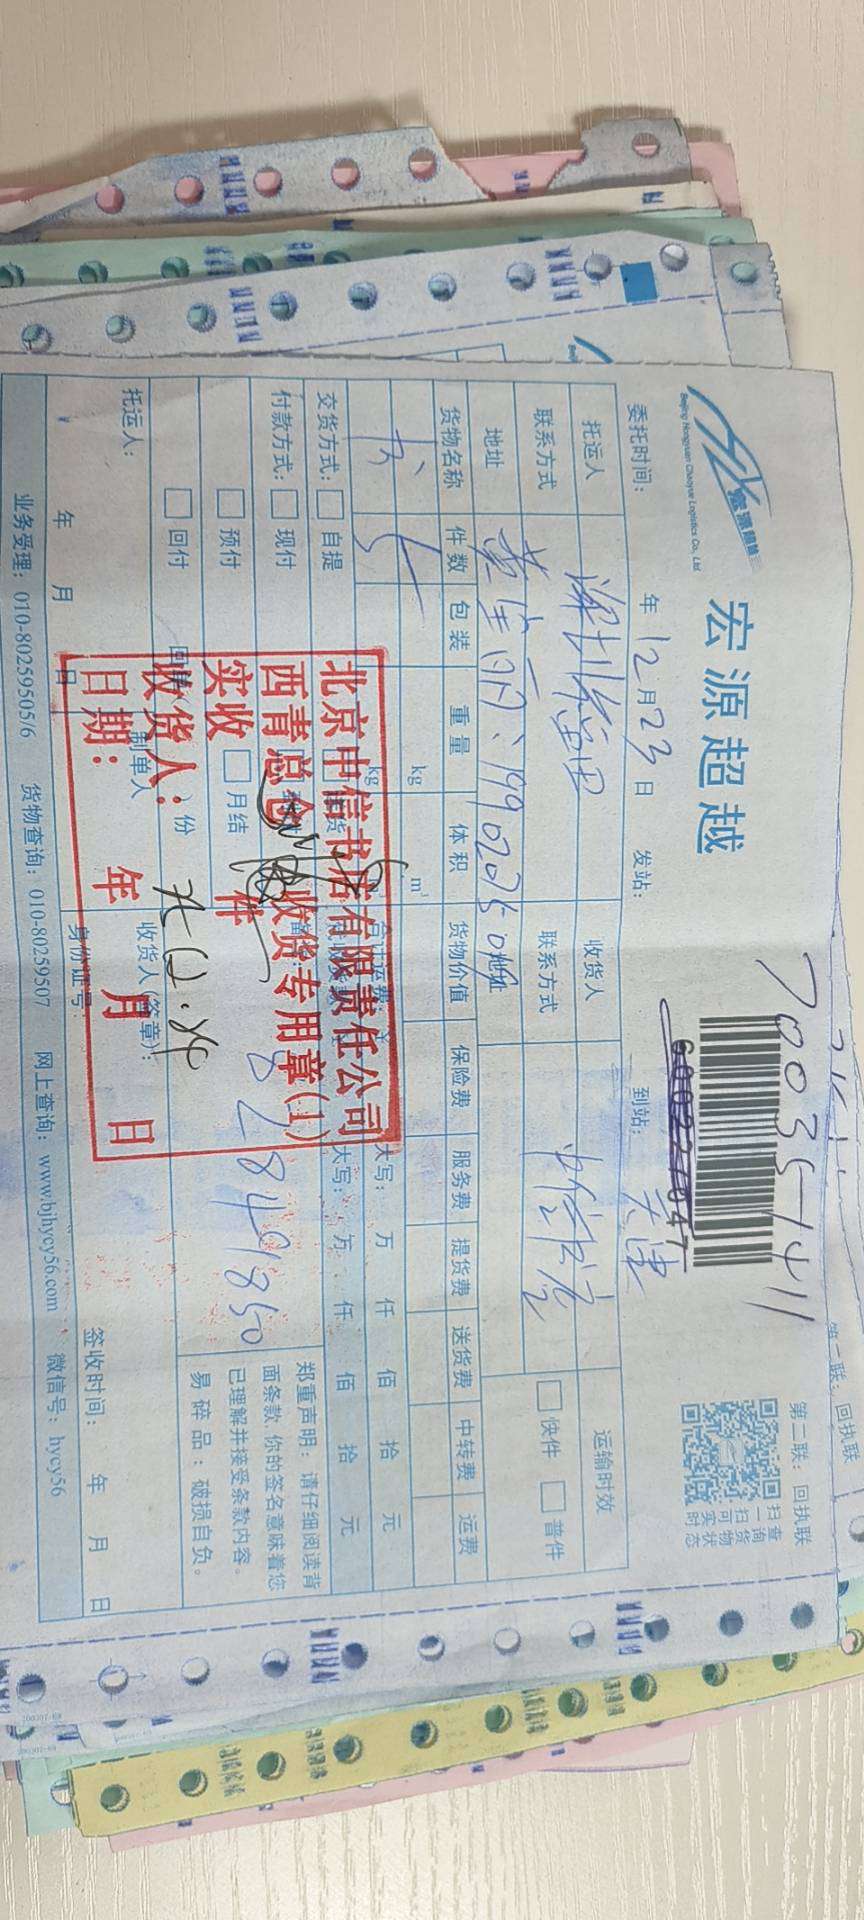 宏源超越
Beijing Hongyuan Chaoyue Logistics Co., Ltd
70035411
60022047
第二联：回执联
扫一扫可实时
查询货物状态
委托时间： 年 12月23日 发站： 到站： 天津
托运人 深圳 收货人 中信书店 运输时效
联系方式 联系方式 快件 普件
地址 地址
货物名称 件数 包装 重量 体积 货物价值 保险费 服务费 提货费 送货费 中转费 运费
书 kg m³
kg 大写： 万 仟 佰 拾 元
交货方式： 自提 大写： 万 仟 佰 拾 元
付款方式： 现付
预付 月结
回付 份
郑重声明：请仔细阅读背
面条款,你的签名意味着您
已理解并接受条款内容。
易碎品：破损自负。
托运人： 制单人 收货人(签章)：
年 月 日 身份证号： 签收时间： 年 月 日
业务受理：010-80259505/6 货物查询：010-80259507 网上查询：www.bjhycy56.com 微信号：hycy56
北京中信书店有限责任公司
西青总仓 收货专用章(1)
实收 件
收货人：
日期： 年 月 日
第二联：回执联